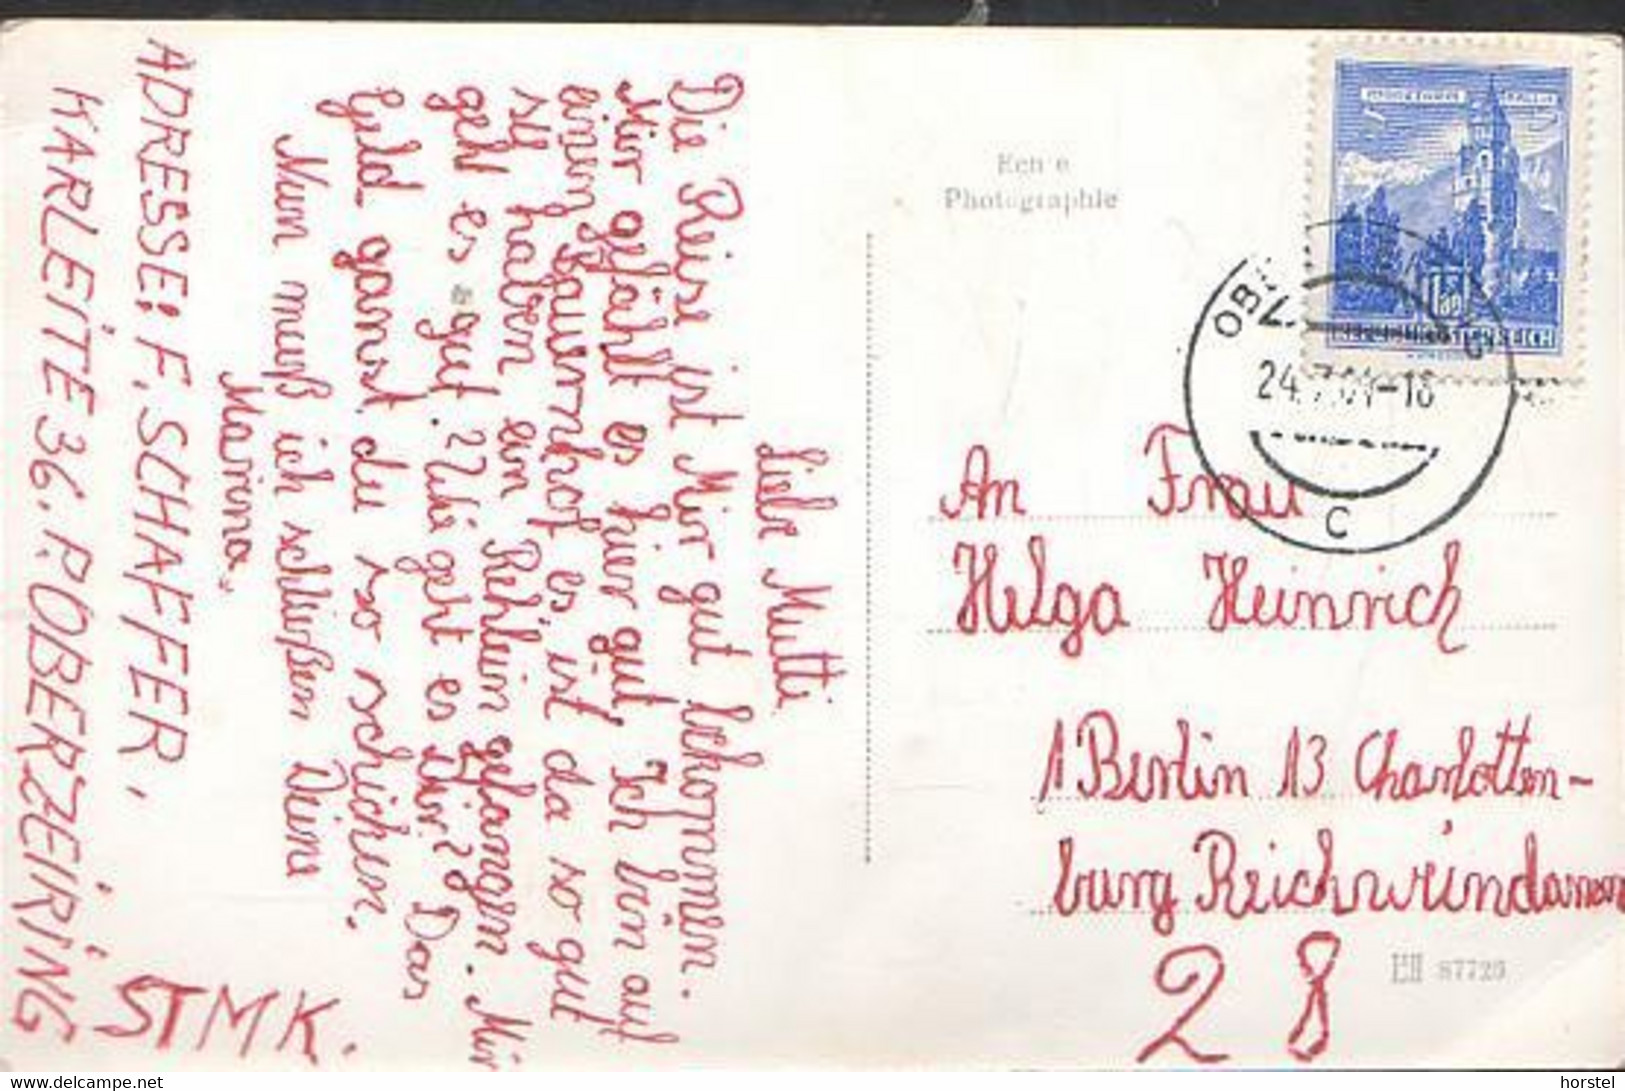 Liebe Mutti
Die Reise ist Mir gut bekommen.
Mir gefählt es hier gut. Ich bin auf
einem Bauernhof es, ist da so gut
sie haben ein Rehlein gefangen. Mir
geht es gut. Wie geht es Dir? Das
Geld gannst du so schicken.
Nun muß ich schließen Deine
Marina.
ADRESSE: F. SCHAFFER,
KARLEITE 36. P. OBERZEIRING
STMK.
Photographie
REPUBLIK ÖSTERREICH
24.7.64-18
C
An Frau
Helga Heinrich
1 Berlin 13 Charlotten-
burg Reichweindamm
28
87726
horstel